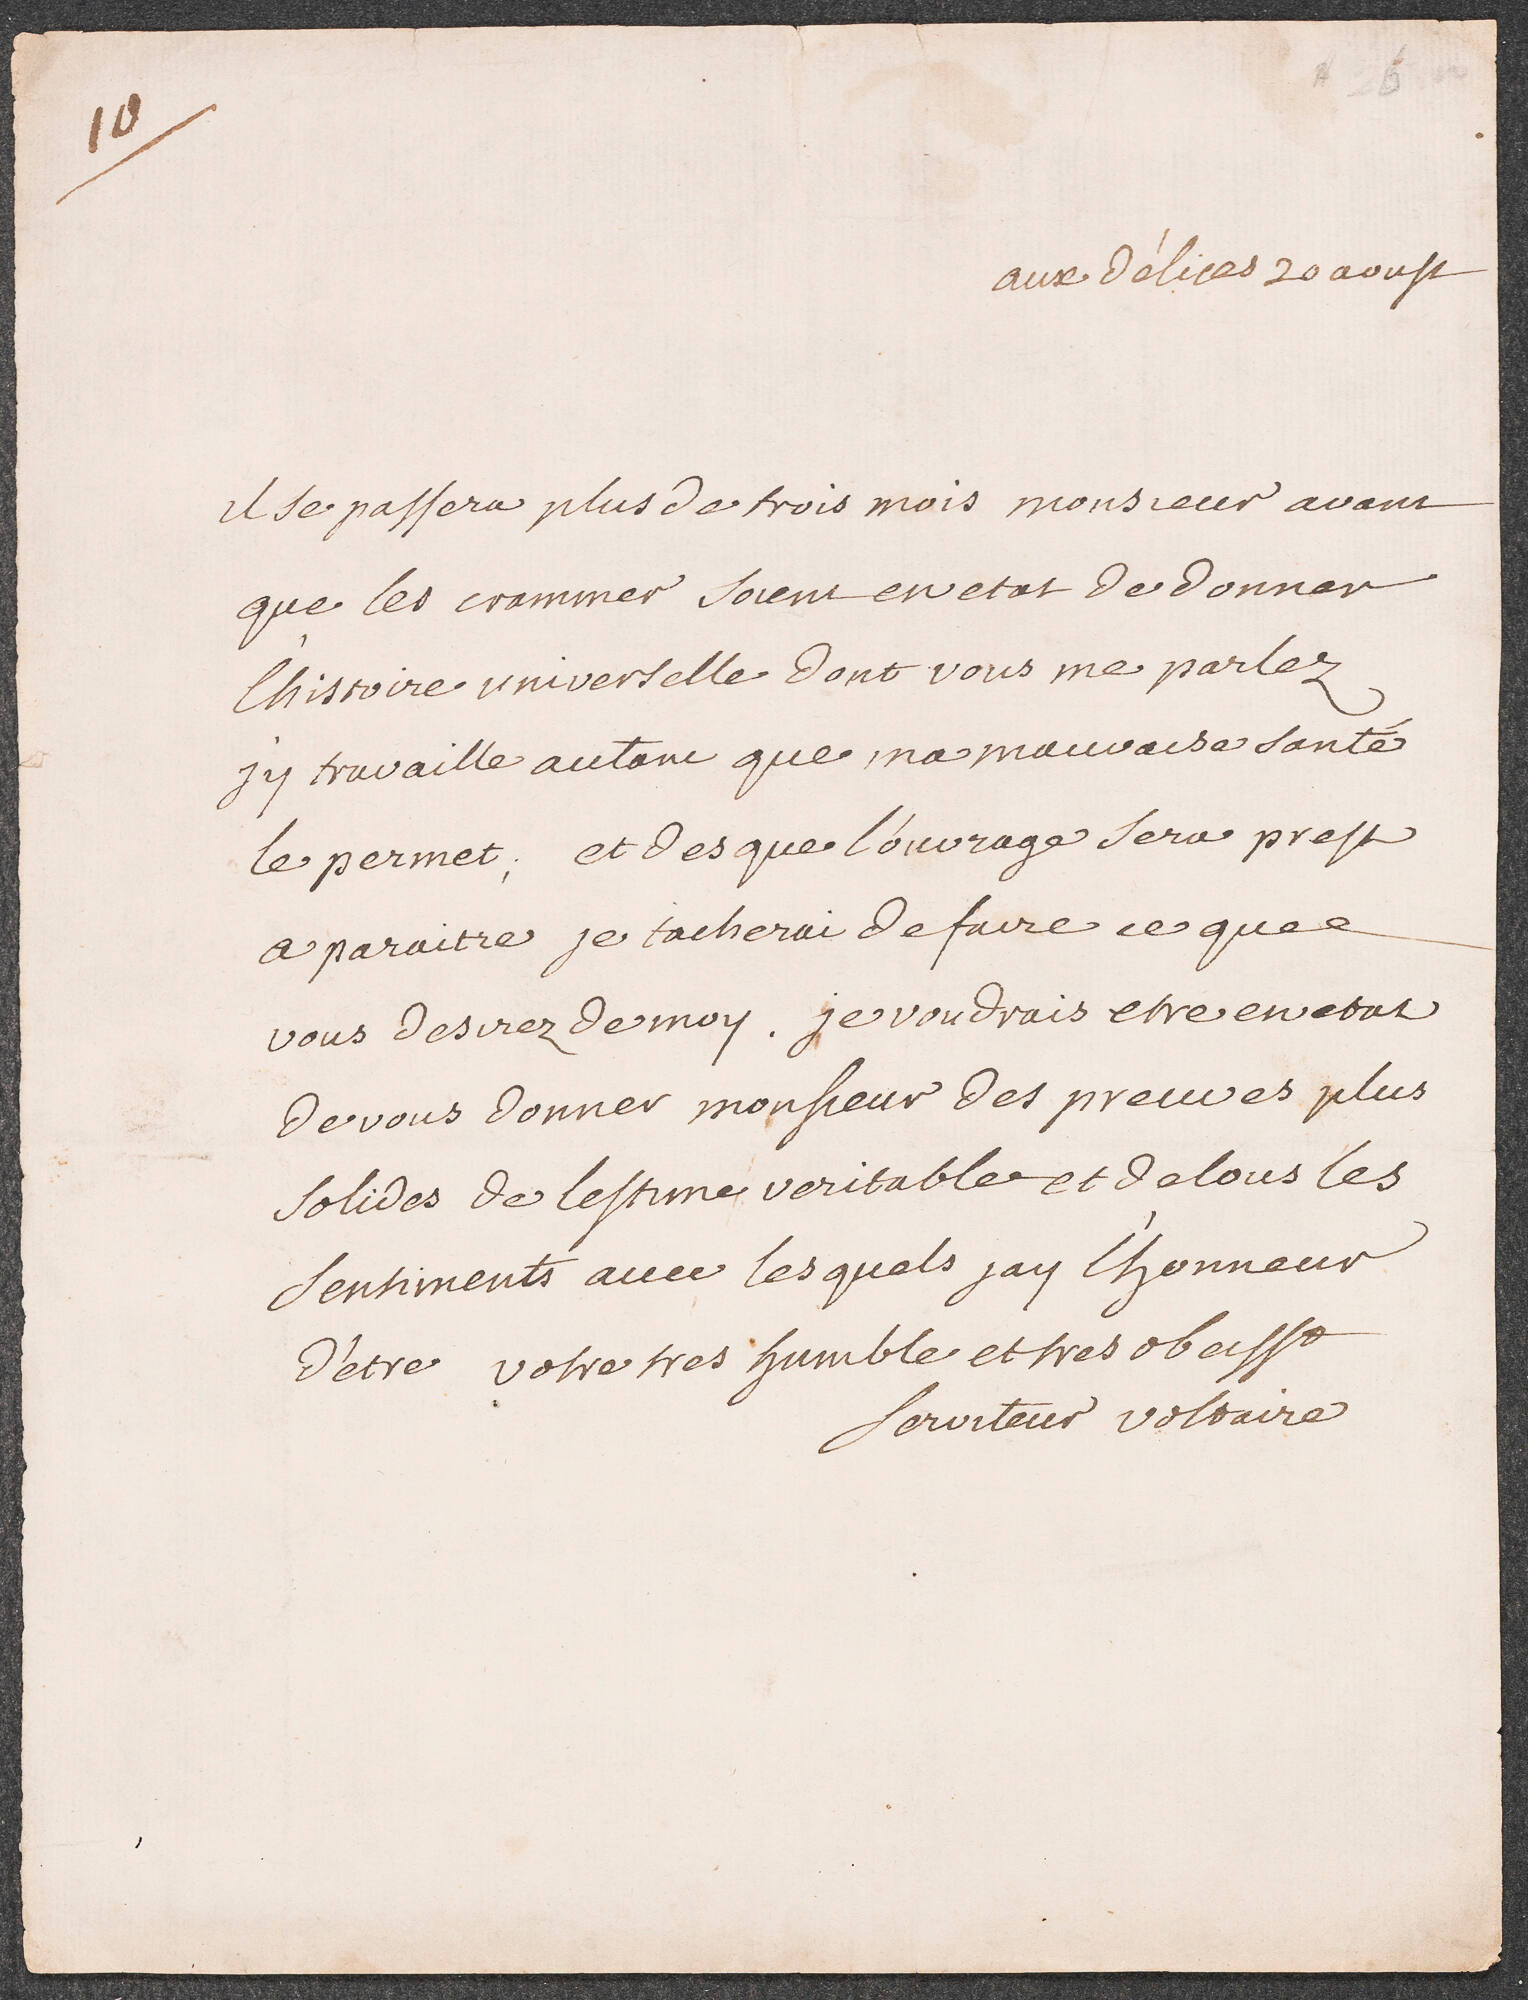 10
aux délices 20 aoust
il se passera plus de trois mois monsieur avant
que les crammer soient en etat de donner
l'histoire universelle dont vous me parlez
j'y travaille autant que ma mauvaise santé
le permet, et des que l'ouvrage sera prest
a paraitre je tacherai de faire ce que
vous desirez de moy. je voudrais etre en etat
de vous donner monsieur des preuves plus
solides de lestime veritable et de tous les
sentiments avec lesquels jay l'honneur
d'etre votre tres humble et tres obeisst
serviteur voltaire